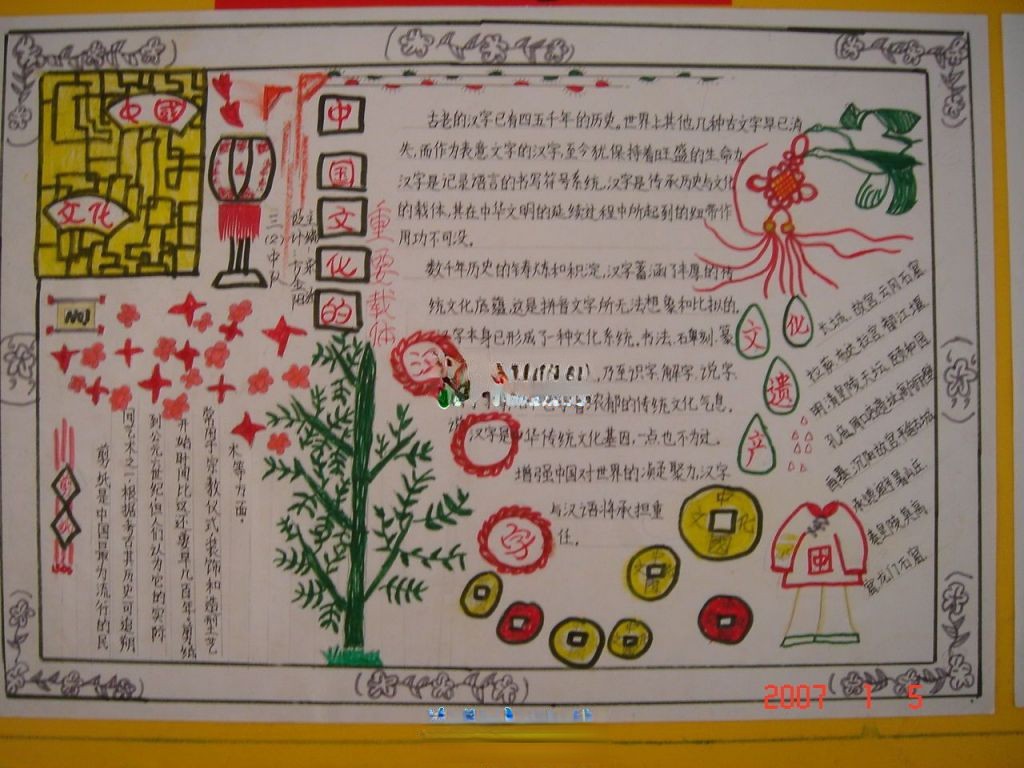 中國
文化
三(2)中队
中国文化的
重要载体
古老的汉字已有四五千年的历史。世界上其他几种古文字早已消
失,而作为表意文字的汉字,至今犹保持着旺盛的生命力
汉字是记录语言的书写符号系统,汉字是传承历史与文化
的载体,其在中华文明的延续过程中所起到的纽带作
用功不可没。
数千年历史的铸炼和积淀,汉字蓄涵了丰厚的传
统文化底蕴,这是拼音文字所无法想象和比拟的。
汉字本身已形成了一种文化系统,书法、石鼻刻、篆
,乃至识字、解字、说字、
浓郁的传统文化气息,
说汉字是中华传统文化基因,一点也不为过。
增强中国对世界的凝聚力,汉字
与汉语将承担重
任。
汉
字
中國文化
文化遗产
长城、故宫、云冈石窟、
拉萨、布达拉宫、都江堰、
明清皇陵、天坛、颐和园
沈阳故宫、平遥古城、
承德避暑山庄、
龙门石窟.
中
NO1
剪纸
剪纸是中国最为流行的民
间艺术之一,根据考古其历史可追朔
到公元六世纪,但人们认为它的实际
开始时间比这还要早几百年。剪纸
常用于宗教仪式、装饰和造型艺
术等方面。
2007 1 5